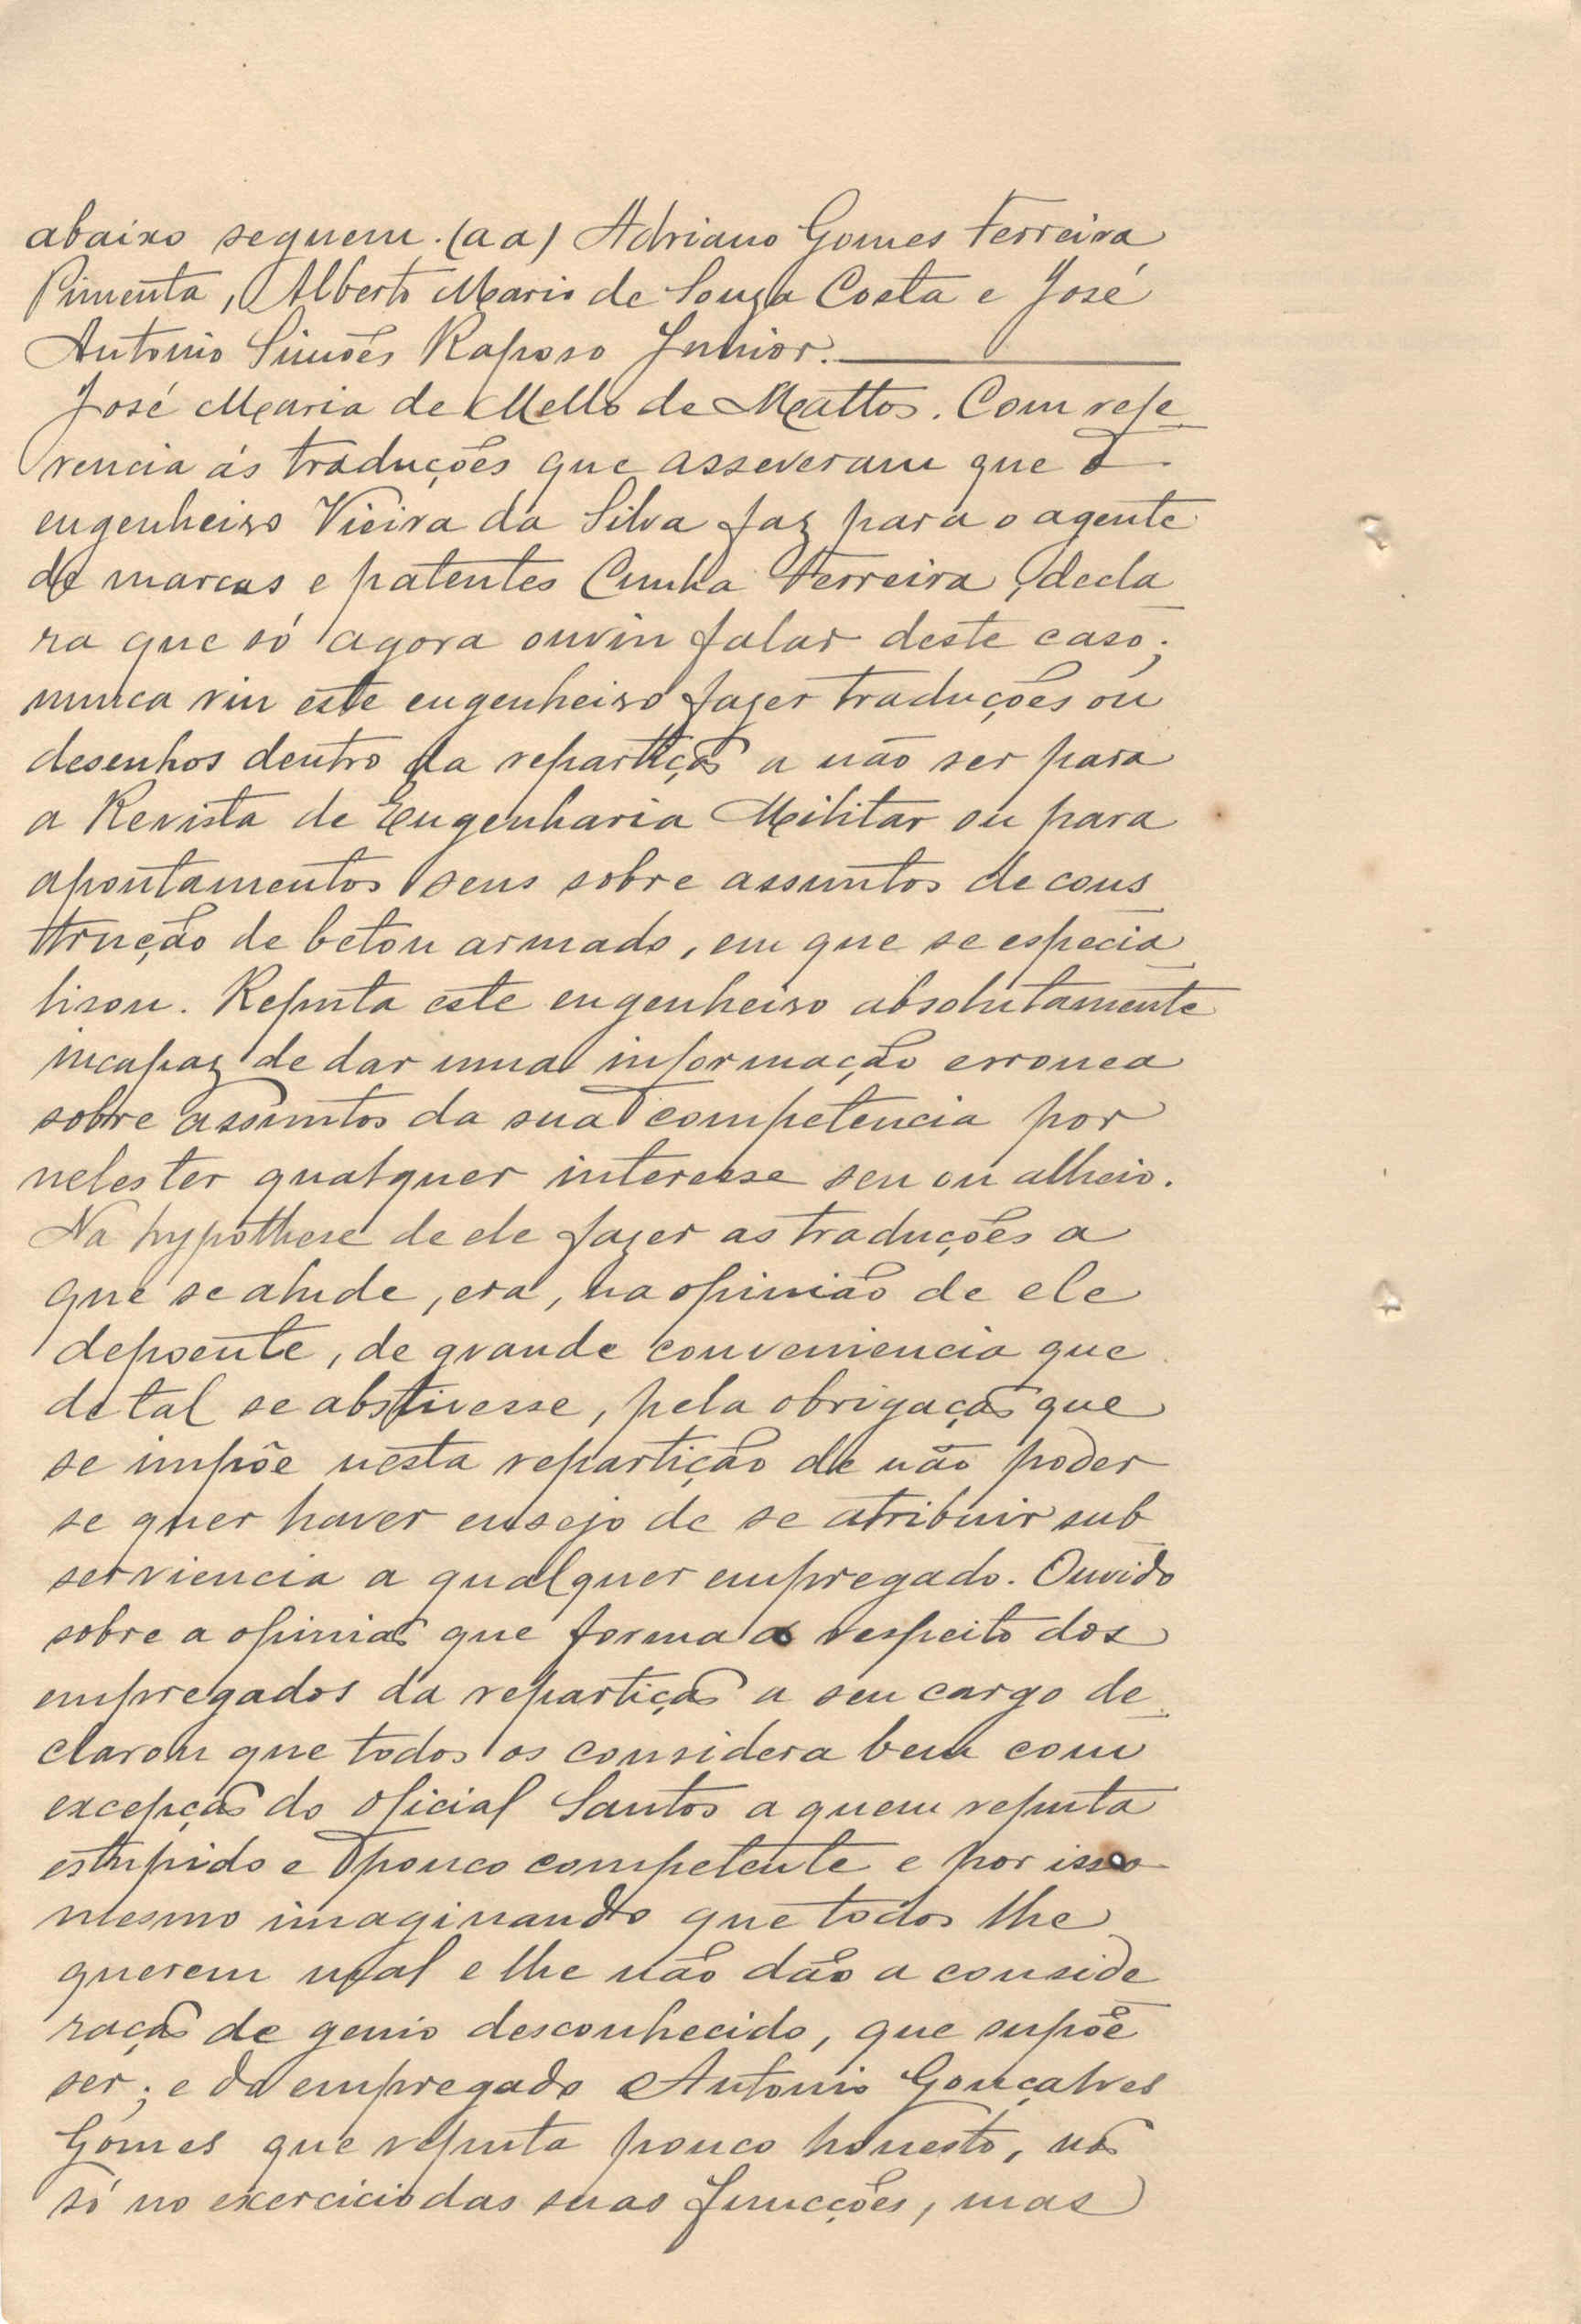 abaixo seguem. (aa) Adriano Gomes Ferreira
Pimenta, Alberto Mario de Souza Costa e José
Antonio Simões Raposo Junior.
José Maria de Mello de Mattos. Com refe
rencia ás traduções que asseveram que o
engenheiro Vieira da Silva faz para o agente
de marcas e patentes Cunha Ferreira, decla
ra que só agora ouviu falar deste caso;
nunca viu este engenheiro fazer traduções ou
desenhos dentro da repartição a não ser para
a Revista de Engenharia Militar ou para
apontamentos seus sobre assuntos de cons
trução de beton armado, em que se especia
lisou. Reputa este engenheiro absolutamente
incapaz de dar uma informação erronea
sobre assuntos da sua competencia por
neles ter qualquer interesse seu ou alheio.
Na hypothese de ele fazer as traduções a
que se alude, era, na opinião de ele
depoente, de grande conveniencia que
de tal se abstivesse, pela obrigação que
se impõe nesta repartição de não poder
se quer haver ensejo de se atribuir sub
serviencia a qualquer empregado. Ouvido
sobre a opinião que forma a respeito dos
empregados da repartição a seu cargo de
clarou que todos os considera bem com
excepção do oficial Santos a quem reputa
estupido e pouco competente e por isso
mesmo imaginando que todos lhe
querem mal e lhe não dão a conside
ração de genio desconhecido, que supõe
ser; e do empregado Antonio Gonçalves
Gomes que reputa pouco honesto, não
só no exercicio das suas funcções, mas